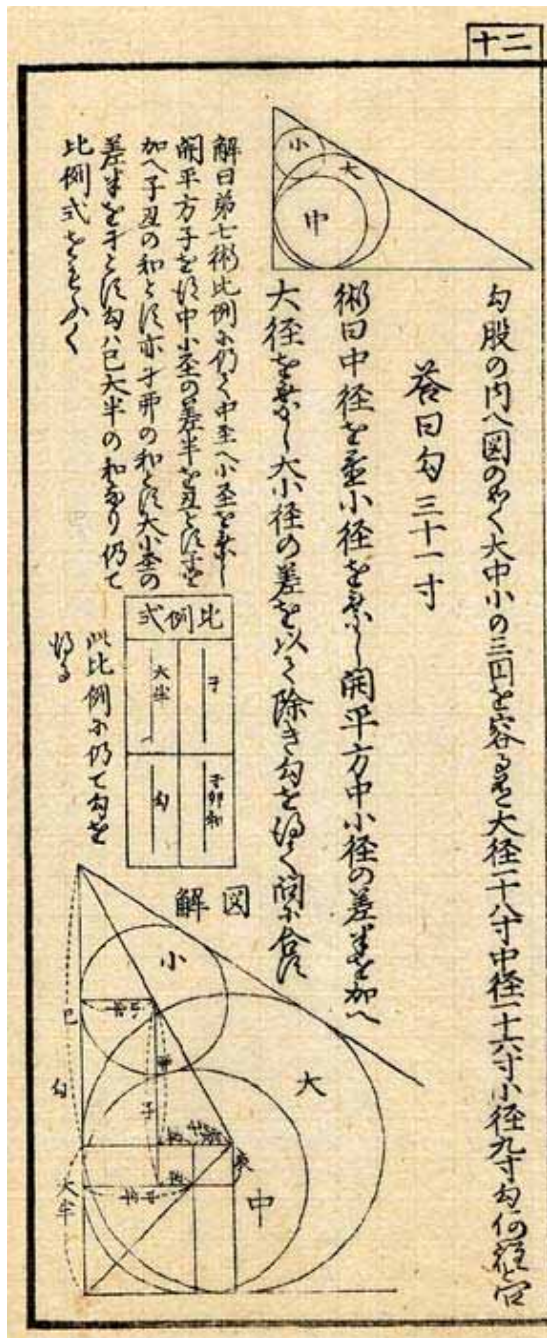 二十
小
大
中
勾股の内へ図の如く大中小の三円を容る大径一十八寸中径一十六寸小径九寸勾何程と問
答曰勾三十一寸
術曰中径を置小径を乗し開平方中小径の差半を加へ
大径を乗し大小径の差を以て除き勾を得て問に合す
解曰第七術比例に仍て中径へ小径を乗し
開平方子を得中小径の差半を丑とす是を
加へ子丑の和とす亦子卯の和とす大小径の
差半を子とす勾ハ巳大半の和なり仍て
比例式をもふく
比例式
子
大半
子卯和
勾
此比例に仍て勾を
得る
図解
小
大
中
巳
勾
大半
子